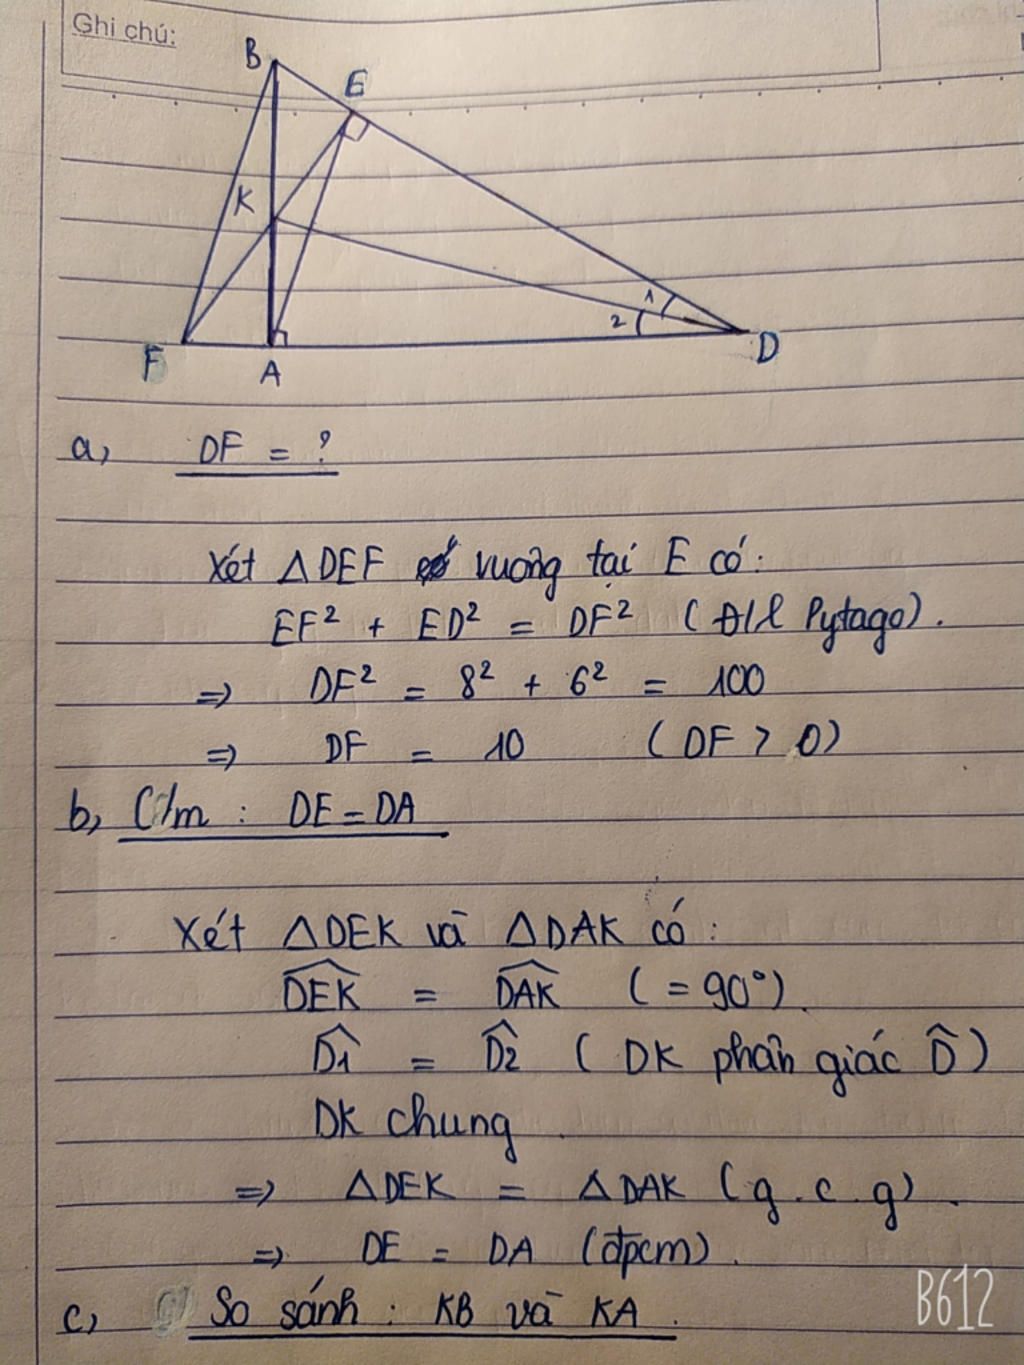 Ghi chú:
B
E
K
1
2
F
A
D
a, DF = ?
Xét △DEF vuông tại E có:
EF² + ED² = DF² (Đ/l Pytago).
=> DF² = 8² + 6² = 100
=> DF = 10 (DF > 0)
b, C/m : DE = DA
Xét △DEK và △DAK có :
$\widehat{DEK}$ = $\widehat{DAK}$ (= 90°).
$\widehat{D1}$ = $\widehat{D2}$ ( DK phân giác $\widehat{D}$ )
DK chung .
=> △DEK = △DAK (g . c . g) .
=> DE = DA (đpcm) .
c, So sánh : KB và KA .
B612